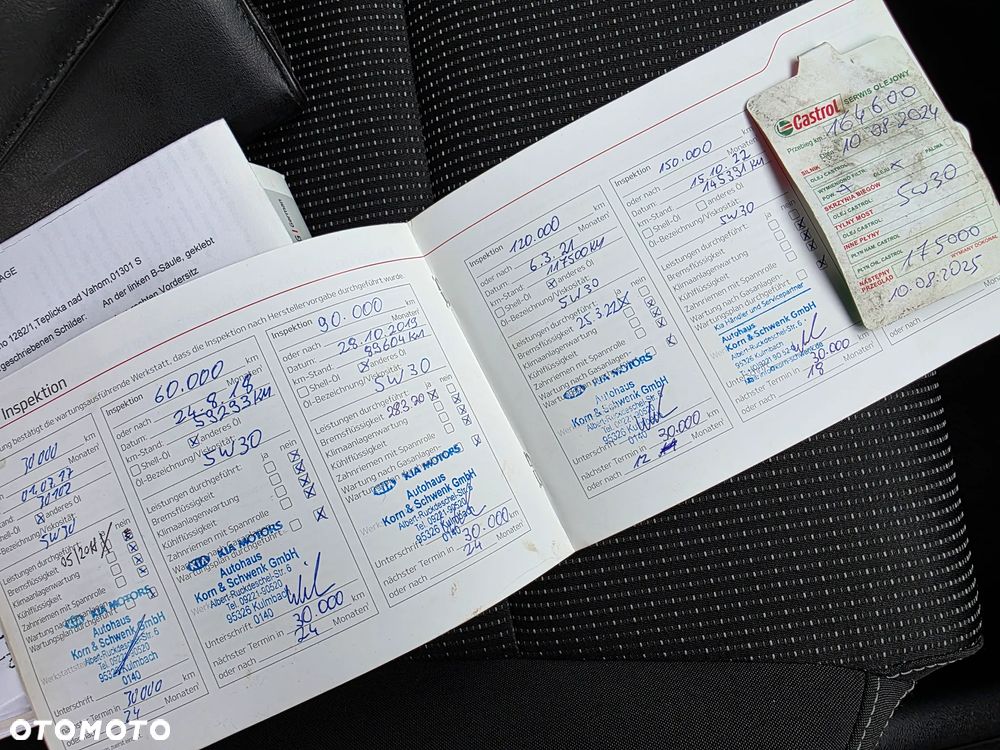 AGE
no 1282/1, Teplicka nad Vahom 01301 S
geschriebenen Schilder: An der linken B-Säule, geklebt
Vordersitz
Inspektion
ung bestätigt die wartungsausführende Werkstatt, dass die Inspektion nach Herstellervorgabe durchgeführt wurde.
30000 km
Monaten
01.07.17
30102
anderes Öl
Bezeichnung/Viskosität
5W30
Leistungen durchgeführt: ja nein
Bremsflüssigkeit
Klimaanlagenwartung
Kühlflüssigkeit
Zahnriemen mit Spannrolle
KIA MOTORS
Autohaus
Korn & Schwenk GmbH
Albert-Ruckdeschel-Str. 6
Tel. 09221-90520
95326 Kulmbach
0140
Unterschrift
30000
24 Monaten
Inspektion 60.000 km
oder nach Monaten
Datum: 24.8.18
km-Stand: 59233 km
Shell-Öl anderes Öl
Öl-Bezeichnung/Viskosität
5W30
Leistungen durchgeführt: ja nein
Bremsflüssigkeit
Klimaanlagenwartung
Kühlflüssigkeit
Zahnriemen mit Spannrolle
KIA MOTORS
Autohaus
Korn & Schwenk GmbH
Albert-Ruckdeschel-Str. 6
Tel. 09221-90520
95326 Kulmbach
0140
Unterschrift
nächster Termin in 30.000
oder nach 24 Monaten
Inspektion 90.000 km
oder nach Monaten
Datum: 28.10.2019
km-Stand: 89604 km
Shell-Öl anderes Öl
Öl-Bezeichnung/Viskosität
5W30
Leistungen durchgeführt: ja nein
Bremsflüssigkeit
Klimaanlagenwartung
Kühlflüssigkeit
Zahnriemen mit Spannrolle
Wartung nach Gasanlagen
KIA MOTORS
Autohaus
Korn & Schwenk GmbH
Albert-Ruckdeschel-Str. 6
Tel. 09221-90520
95326 Kulmbach
0140
Unterschrift
nächster Termin in 30.000 km
oder nach 24 Monaten
Inspektion 120.000 km
oder nach Monaten
Datum: 6.3.21
km-Stand: 117500 km
Shell-Öl anderes Öl
Öl-Bezeichnung/Viskosität
5W30
Leistungen durchgeführt: ja nein
Bremsflüssigkeit 25.3.22
Klimaanlagenwartung
Kühlflüssigkeit
Zahnriemen mit Spannrolle
KIA MOTORS
Autohaus
Korn & Schwenk GmbH
Albert-Ruckdeschel-Str. 6
95326 Kulmbach
0140
Unterschrift
nächster Termin in 30.000 km
oder nach 12 Monaten
Inspektion 150.000 km
oder nach Monaten
Datum: 15.10.22
km-Stand: 145391 km
Shell-Öl anderes Öl
Öl-Bezeichnung/Viskosität
5W30
Leistungen durchgeführt: ja
Bremsflüssigkeit
Klimaanlagenwartung
Kühlflüssigkeit
Zahnriemen mit Spannrolle
Kia Händler und Servicepartner
Autohaus
Korn & Schwenk GmbH
Albert-Ruckdeschel-Str. 6
95326 Kulmbach
Unterschrift
nächster Termin in 30.000 km
oder nach 18
Castrol SERWIS OLEJOWY
Przebieg km 164600
10.08.2024
SILNIK
OLEJ CASTROL 5W30
WYMIENIONO FILTR: POW. OLEJU PALIWA
SKRZYNIA BIEGÓW
OLEJ CASTROL:
TYLNY MOST
OLEJ CASTROL:
INNE PŁYNY
PŁYN HAM. CASTROL
PŁYN CHŁ. CASTROL
WYMIANY DOKONAŁ
NASTĘPNY PRZEGLĄD 175000
10.08.2025
OTOMOTO